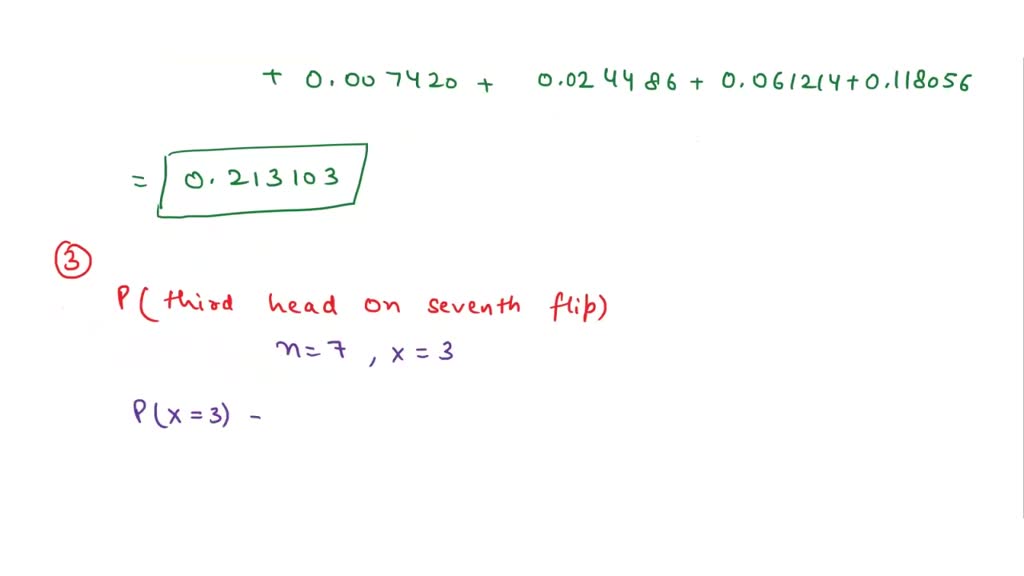 + 0.007420 + 0.024486 + 0.061214 + 0.118056
= 0.213103
3
P(third head on seventh flip)
n=7, x=3
P(x=3) -